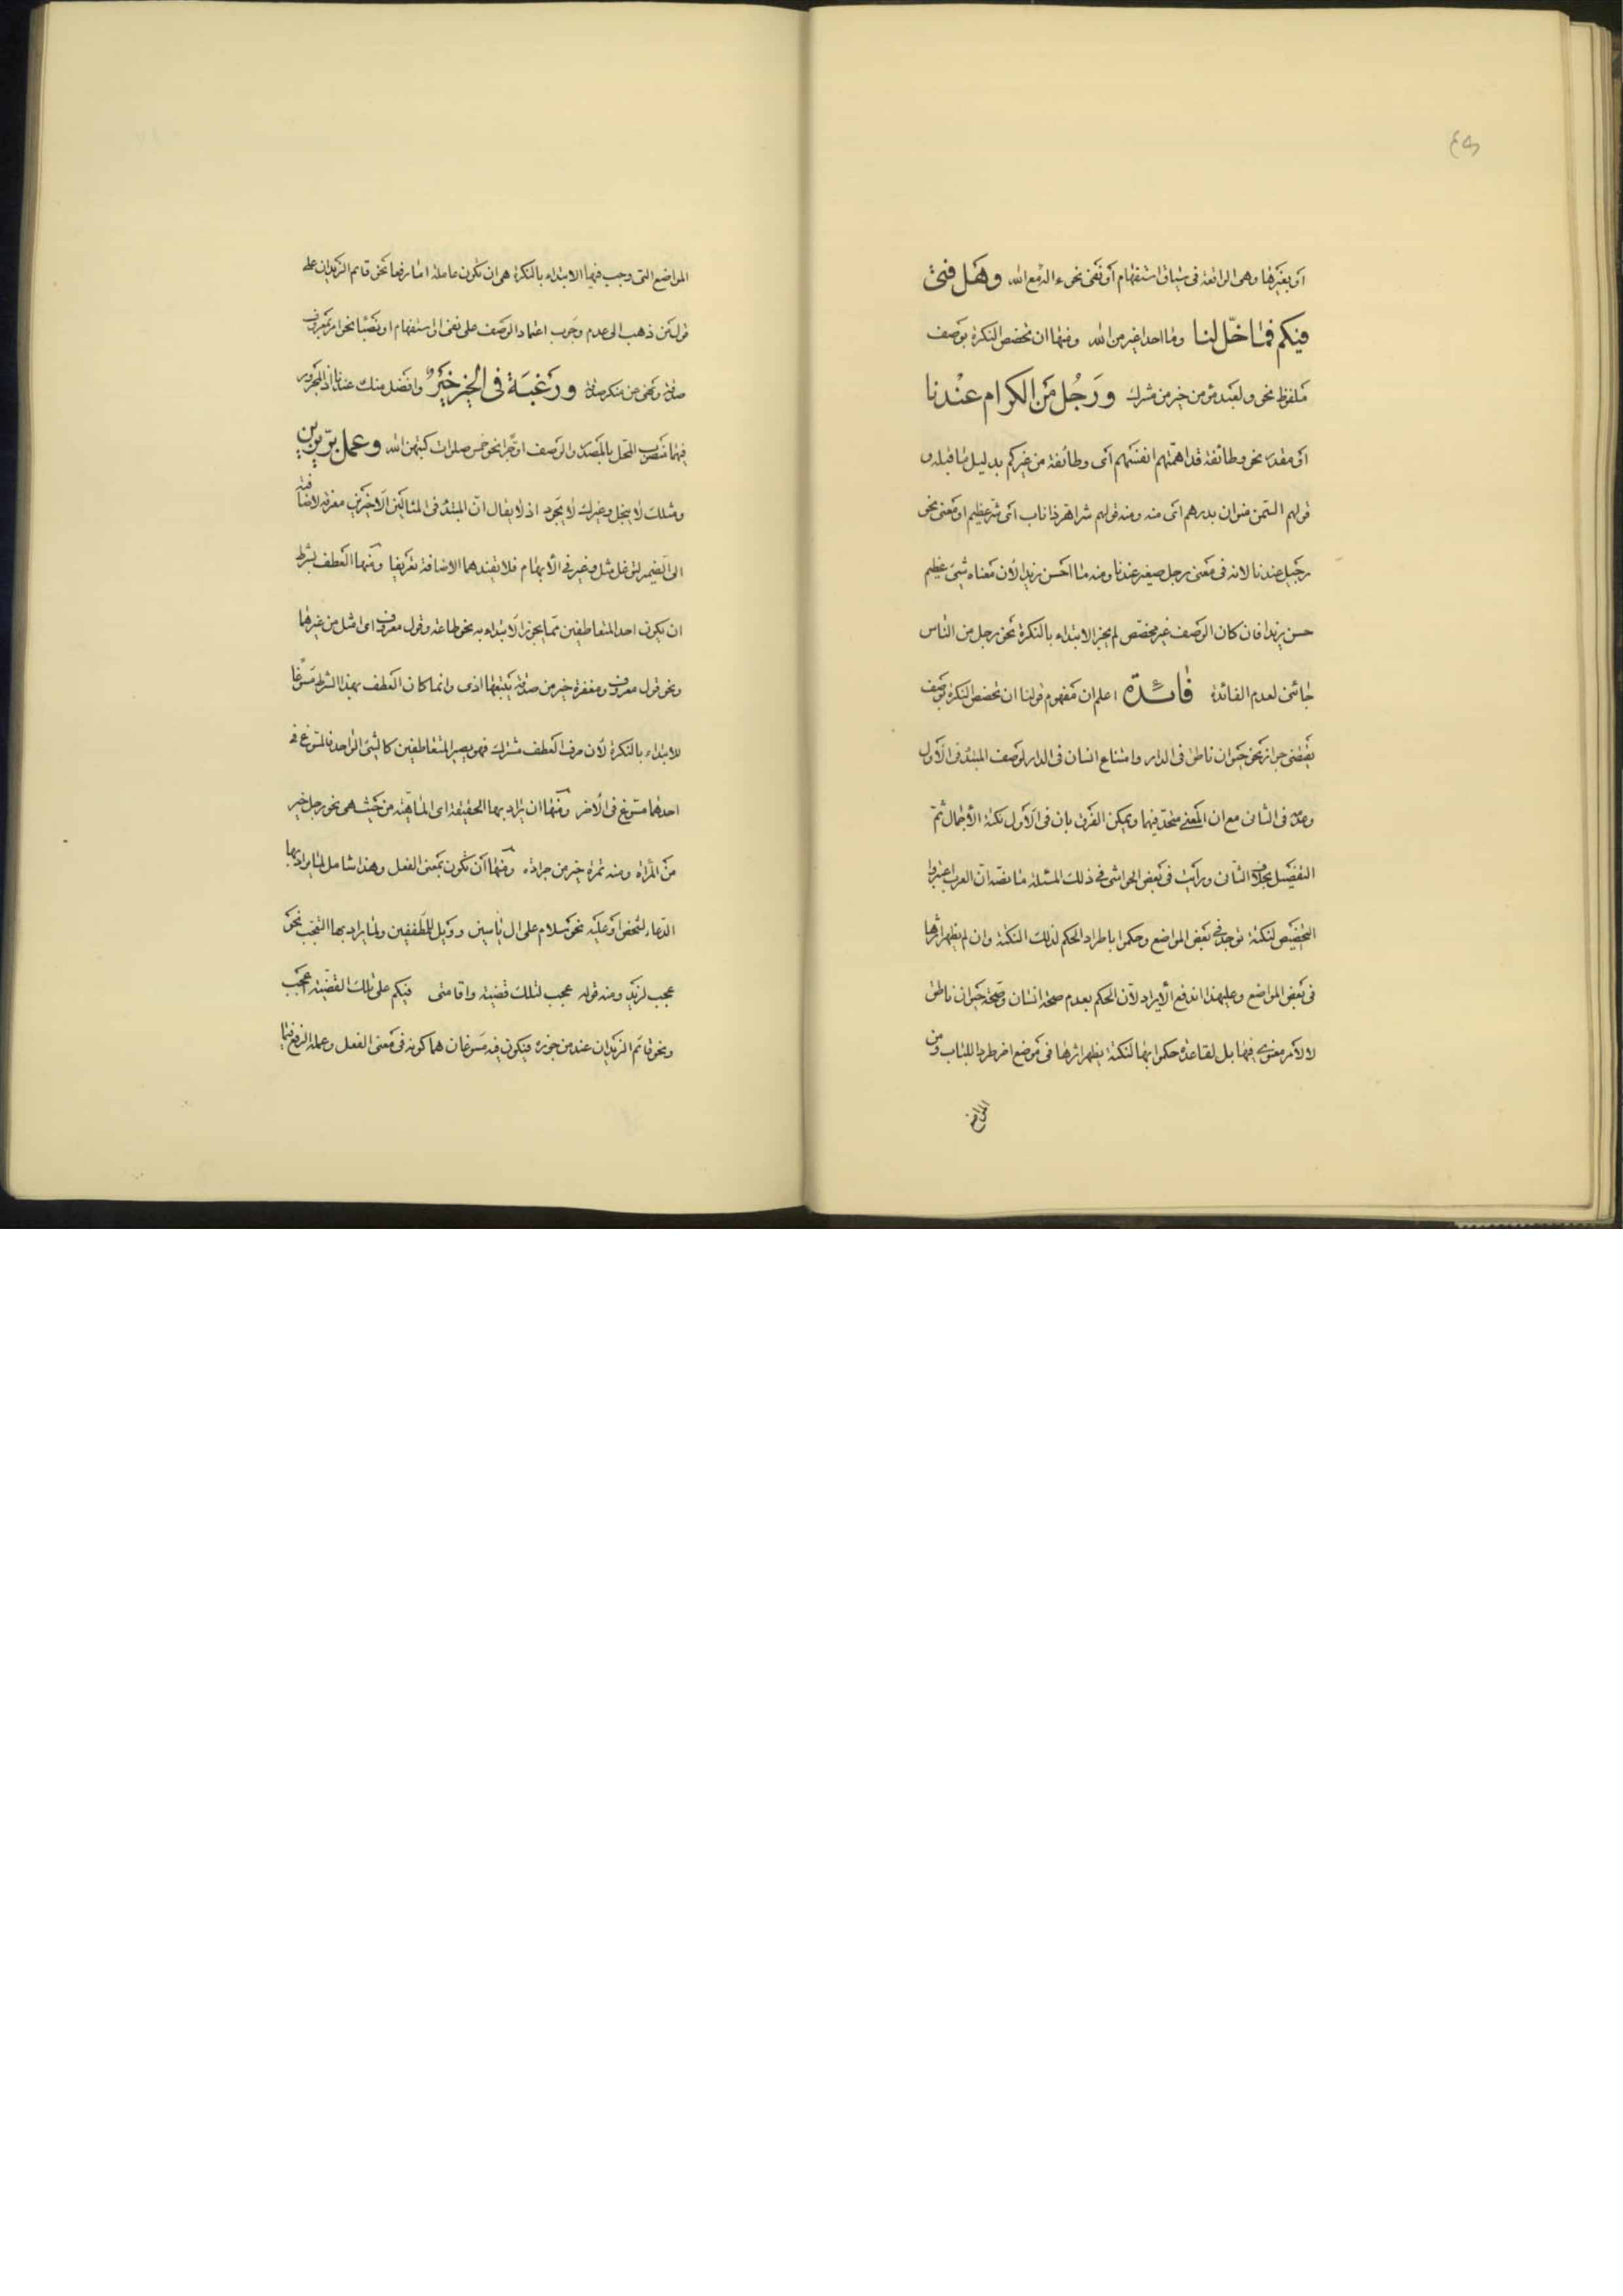 ٤٥
او بغيرها وهى الواقعة فى سياق استفهام او نفى نحو ءاله مع الله وهَل فتىً
فيكم فمٰا خلّ لنا وما احد اغير من الله ومنها ان تخصص النكرة بوصف
ملفوظ نحو ولعبد مؤمن خير من مشرك ورَجُل مَن الكرام عنْدنا
او مقدر نحو وطائفة قد اهمتهم انفسهم اى وطائفة من غيركم بدليل ما قبله و
قولهم السمن منوان بدرهم اى منه ومنه قولهم شر اهر ذا ناب اى شر عظيم او معنى نحو
رجيل عندنا لانه فى معنى رجل صغير عندنا ومنه ما احسن زيدا لان معناه شىء عظيم
حسن زيدا فان كان الوصف غير مخصص لم يجز الابتداء بالنكرة نحو رجل من الناس
جائنى لعدم الفائدة فائدة اعلم ان مفهوم قولنا ان تخصص النكرة بوصف
يقتضى جواز نحو حيوان ناطق فى الدار وامتناع انسان فى الدار لوصف المبتدء فى الاول
وعدمه فى الثانى مع ان المعنى متحد فيهما ويمكن الفرق بان فى الاول نكتة الاجمال ثم
التفضيل بخلاف الثانى ورايت فى بعض الحواشى فى ذلك المسئلة ما نصه ان العرب اعتبروا
التخصيص لنكتة توجد فى بعض المواضع وحكموا باطراد الحكم لذلك النكتة وان لم يظهر اثرها
فى بعض المواضع وعليهذا اندفع الايراد لان الحكم بعدم صحة انسان وصحة حيوان ناطق
لا لامر معنوى فيها بل لقاعدة حكموا بها لنكتة يظهر اثرها فى موضع اخر طردا للباب ومن
المواضع
المواضع التى وجب فيها الابتداء بالنكرة هى ان تكون عاملة اما رفعا نحو قائم الزيدان على
قول من ذهب الى عدم وجوب اعتماد الوصف على نفى او استفهام او نصبا نحو امر بمعروف
صدقة ونهى عن منكر صدقة ورَغبَة فى الخيرِ خَيرٌ وافضل منك عندنا اذ المجرور
فيهما منصوب المحل بالمصدر والوصف او جرا نحو خمس صلوات كتبهن الله وعمل برّ يزين
ومثلك لا يبخل وغيرك لا يجود اذ لا يقال ان المبتدء فى المثالين الاخيرين معرفة لاضافته
الى الضمير لتوغل مثل وغير فى الابهام فلا تفيدهما الاضافة تعريفا ومنها العطف بشرط
ان يكون احد المتعاطفين مما يجوز الابتداء به نحو طاعة وقول معروف اى امثل من غيرهما
ونحو قول معروف ومغفرة خير من صدقة يتبعها اذى وانما كان العطف بهذا الشرط مسوغا
للابتداء بالنكرة لان حرف العطف مشترك فهو يصير المتعاطفين كالشىء الواحد فالمسوغ فى
احدهما مسوغ فى الاخر ومنها ان يراد بها الحقيقة اى الماهية من حيث هى نحو رجل خير
من المراة ومنه تمرة خير من جرادة ومنها ان تكون بمعنى الفعل وهذا شامل لما يراد بها
الدعاء لشخص او عليه نحو سلام على ال ياسين وويل للمطففين ولما يراد بها التعجب نحو
عجب لزيد ومنه قوله عجب لتلك قضية واقامتى فيكم على تلك القضية اعجب
ونحو قائم الزيدان عند من جوزه فيكون فيه مسوغان هما كونه فى معنى الفعل وعمله الرفع فيما